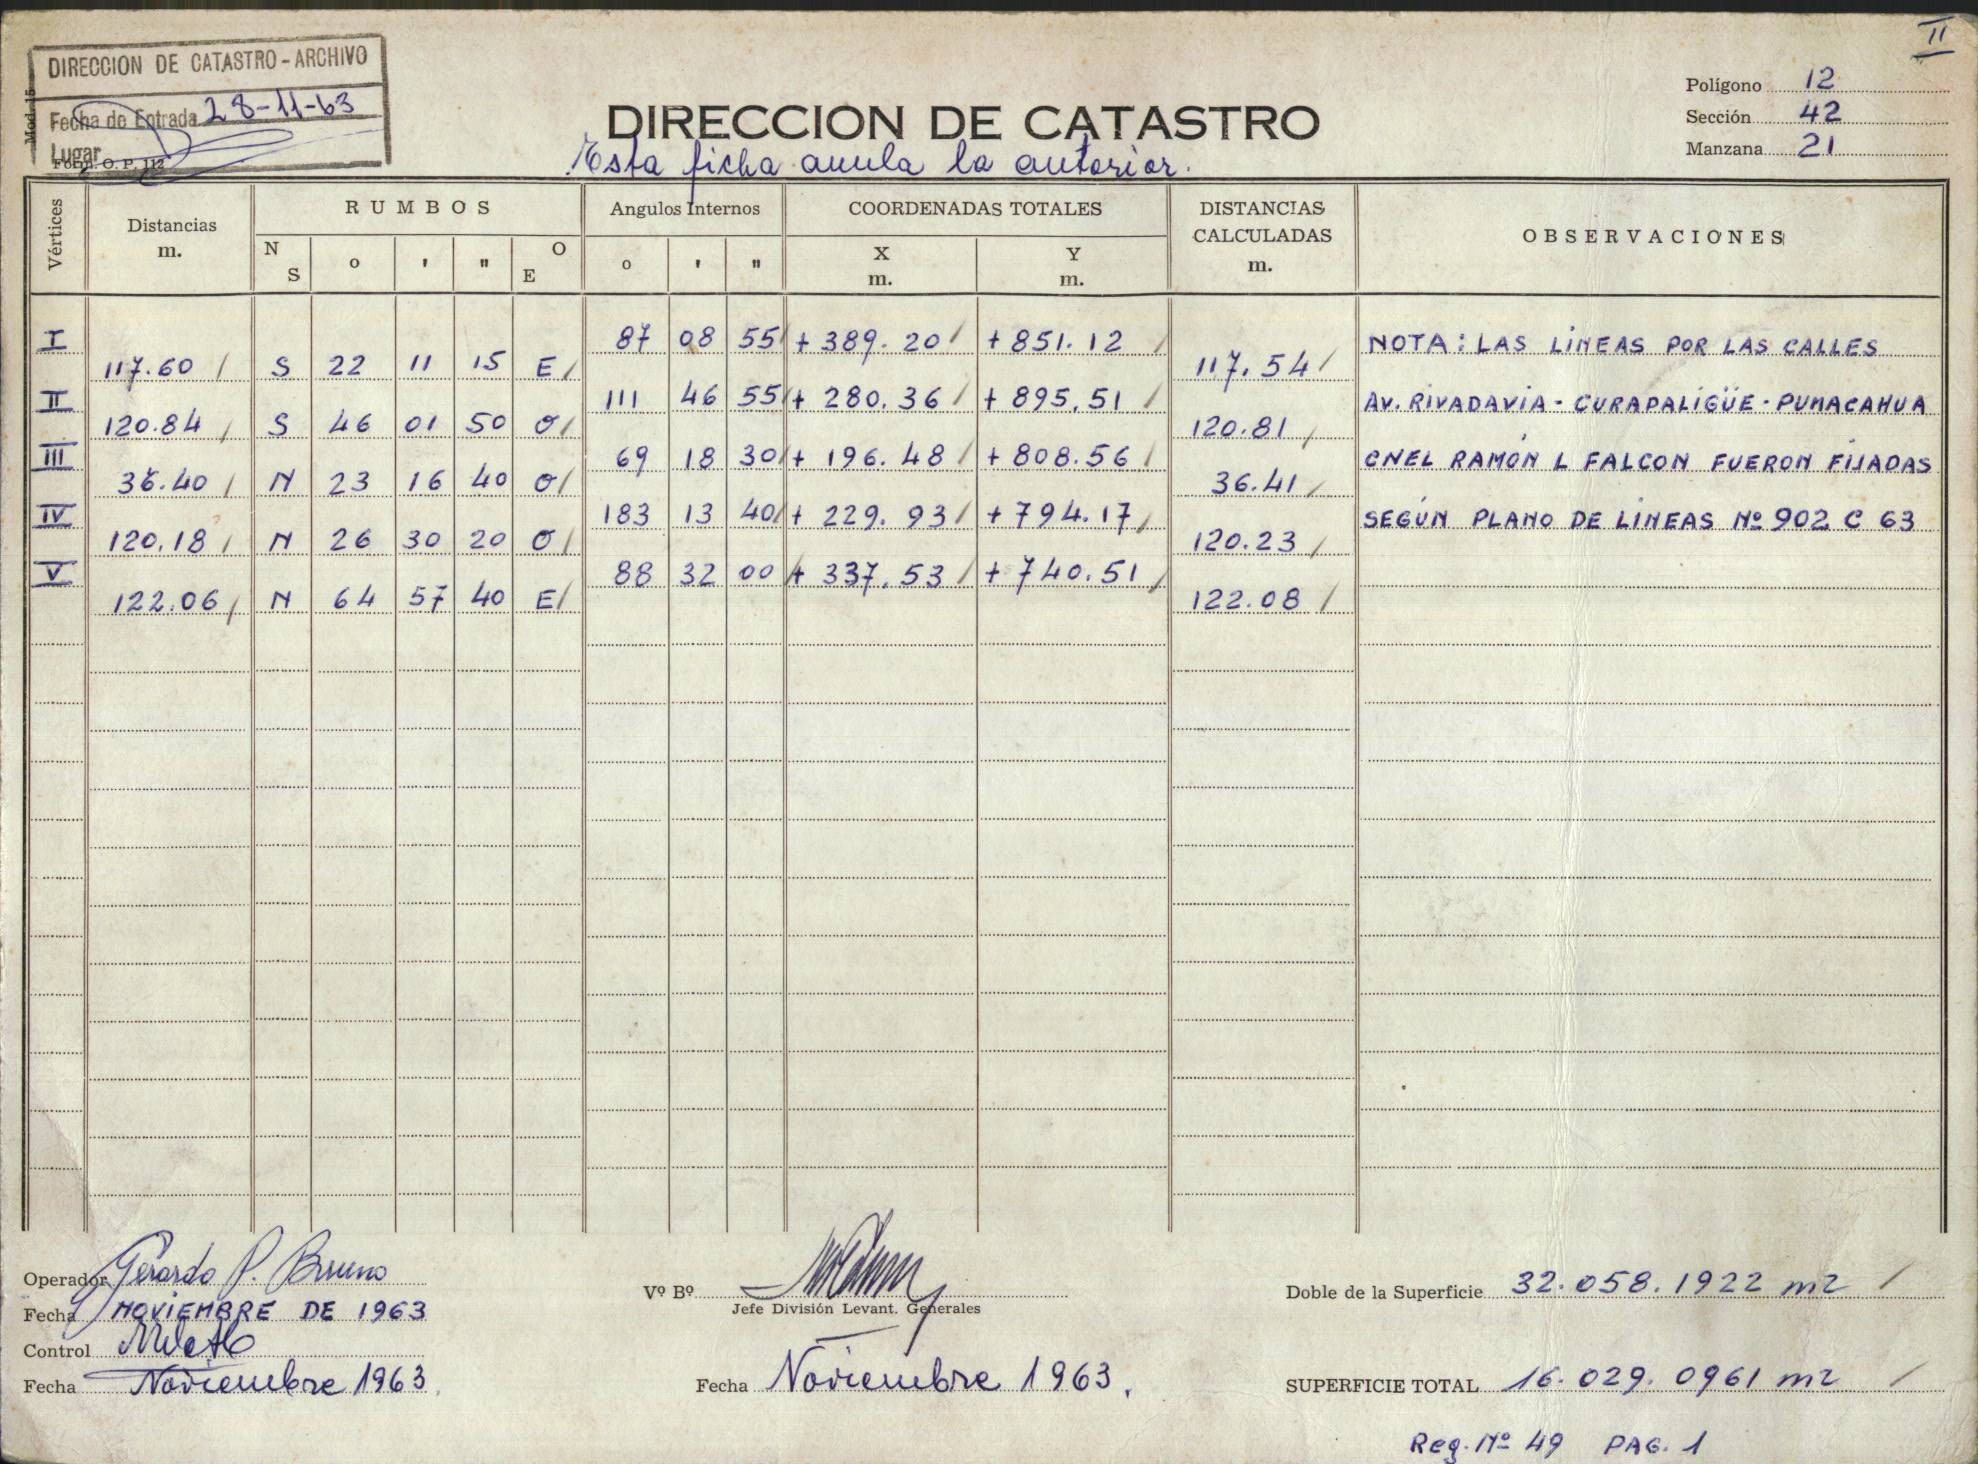 II
DIRECCION DE CATASTRO - ARCHIVO
Fecha de Entrada 28-11-63
Lugar
Mod. 15
Form. O. P. 112
DIRECCION DE CATASTRO
Esta ficha anula la anterior.
Polígono 12
Sección 42
Manzana 21
Vértices Distancias m. RUMBOS Angulos Internos COORDENADAS TOTALES DISTANCIAS CALCULADAS m. OBSERVACIONES
N S o ' " O E o ' " X m. Y m.
I 87 08 55 + 389.20 + 851.12 NOTA: LAS LÍNEAS POR LAS CALLES
117.60 S 22 11 15 E 117.54
II 111 46 55 + 280.36 + 895.51 AV. RIVADAVIA - CURAPALIGÜE - PUMACAHUA
120.84 S 46 01 50 O 120.81
III 69 18 30 + 196.48 + 808.56 CNEL RAMÓN L FALCON FUERON FIJADAS
36.40 N 23 16 40 O 36.41
IV 183 13 40 + 229.93 + 794.17 SEGÚN PLANO DE LÍNEAS Nº 902 C 63
120.18 N 26 30 20 O 120.23
V 88 32 00 + 337.53 + 740.51
122.06 N 64 57 40 E 122.08
Operador Gerardo P. Bruno
Fecha NOVIEMBRE DE 1963
Control
Fecha Noviembre 1963
Vº Bº
Jefe División Levant. Generales
Fecha Noviembre 1963.
Doble de la Superficie 32.058.1922 m2
SUPERFICIE TOTAL 16.029.0961 m2
Reg. Nº 49 PAG. 1